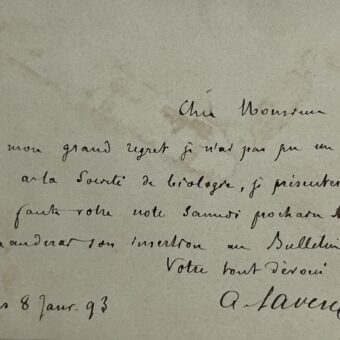 Cher Monsieur
mon grand regret je n'ai pas pu un
a la Société de biologie, je présenter
faute votre note samedi prochain
manderai son insertion au Bulletin
Votre tout dévoué
8 Janv. 93 A Laver